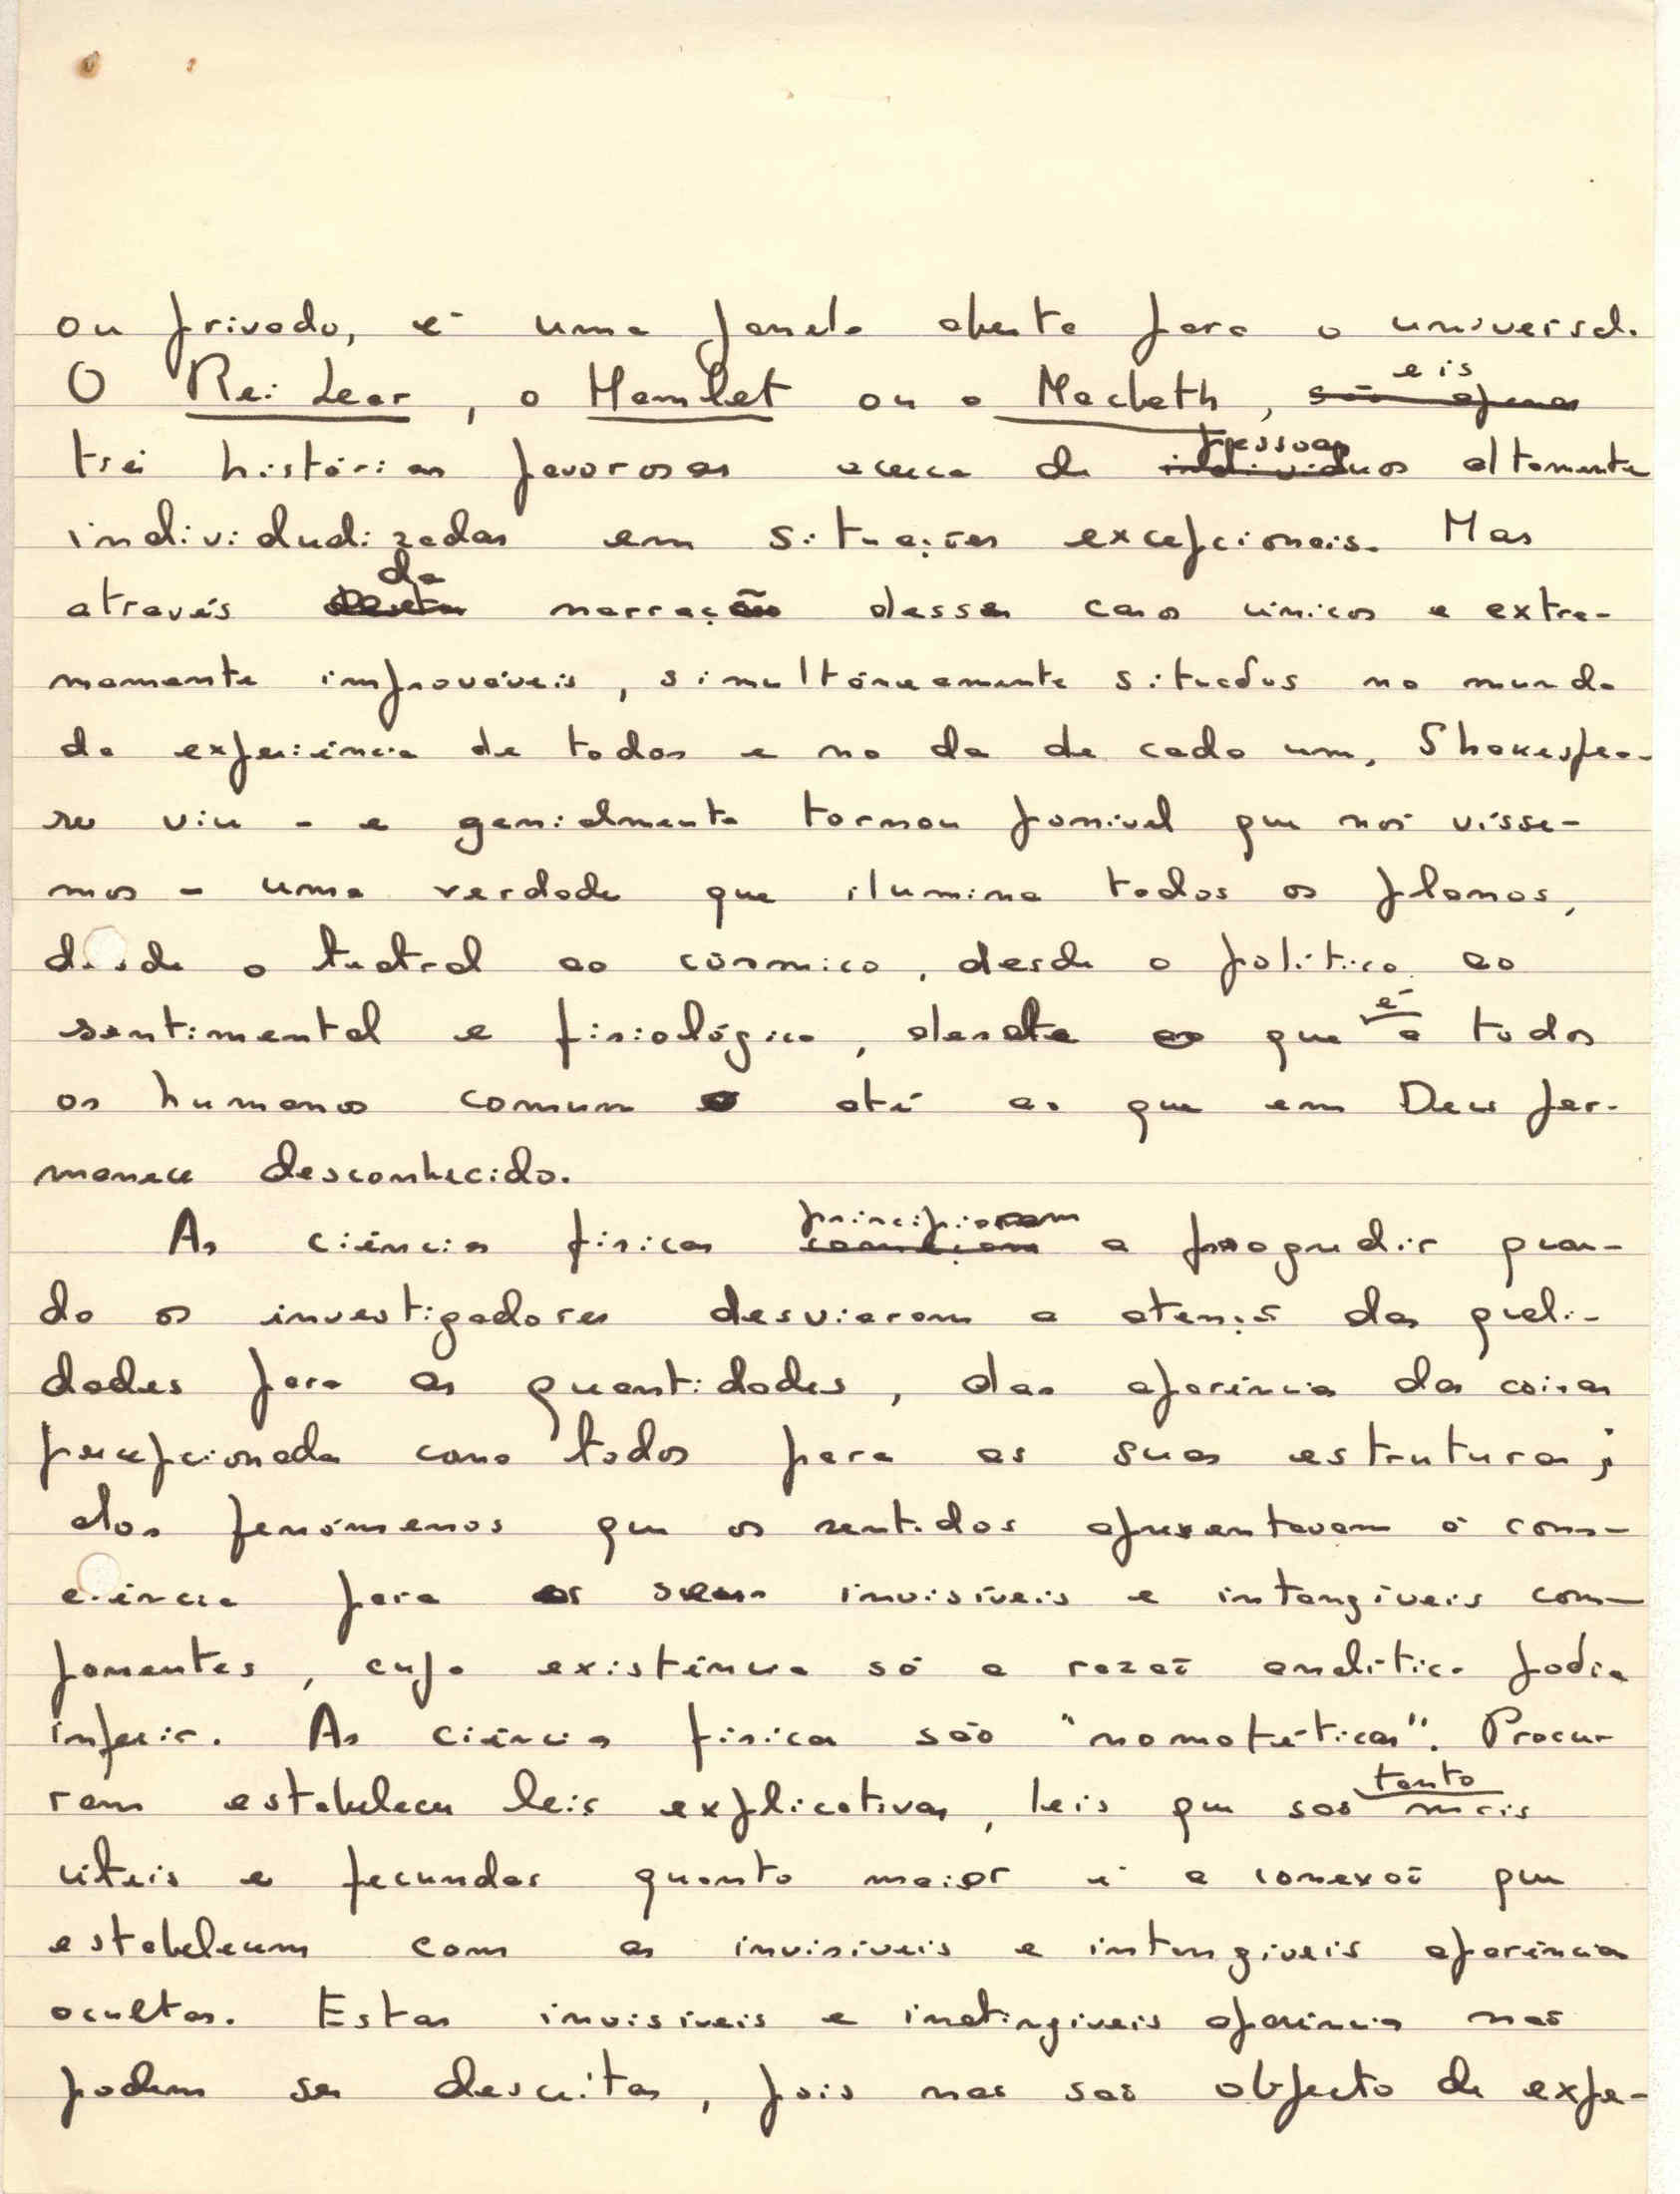 ou privado, é uma janela aberta para o universal.
O Rei Lear, o Hamlet ou o Macbeth, são apenas eis
três histórias pavorosas acerca de indivíduos pessoas altamente
individualizadas em situações excepcionais. Mas
através desta da narração desses casos únicos e extre-
mamente improváveis, simultâneamente situados no mundo
da experiência de todos e no da de cada um, Shakespea-
re viu - e genialmente tornou possível que nós vísse-
mos - uma verdade que ilumina todos os planos,
desde o teatral ao cósmico, desde o político ao
sentimental e fisiológico, desde o que é a todos
os humanos comum até ao que em Deus per-
manece desconhecido.
As ciências físicas começam principiaram a progredir quan-
do os investigadores desviaram a atenção das quali-
dades para as quantidades, das aparências das coisas
percepcionadas como todos para as suas estruturas;
dos fenómenos que os sentidos apresentavam à cons-
ciência para os seus invisíveis e intangíveis com-
ponentes, cuja existência só a razão analítica podia
inferir. As ciências físicas são "nomotéticas". Procu-
ram estabelecer leis explicativas, leis que são tanto mais
úteis e fecundas quanto maior é a conexão que
estabelecem com as invisíveis e intangíveis aparências
ocultas. Estas invisíveis e inatingíveis aparências não
podem ser descritas, pois não são objecto de expe-